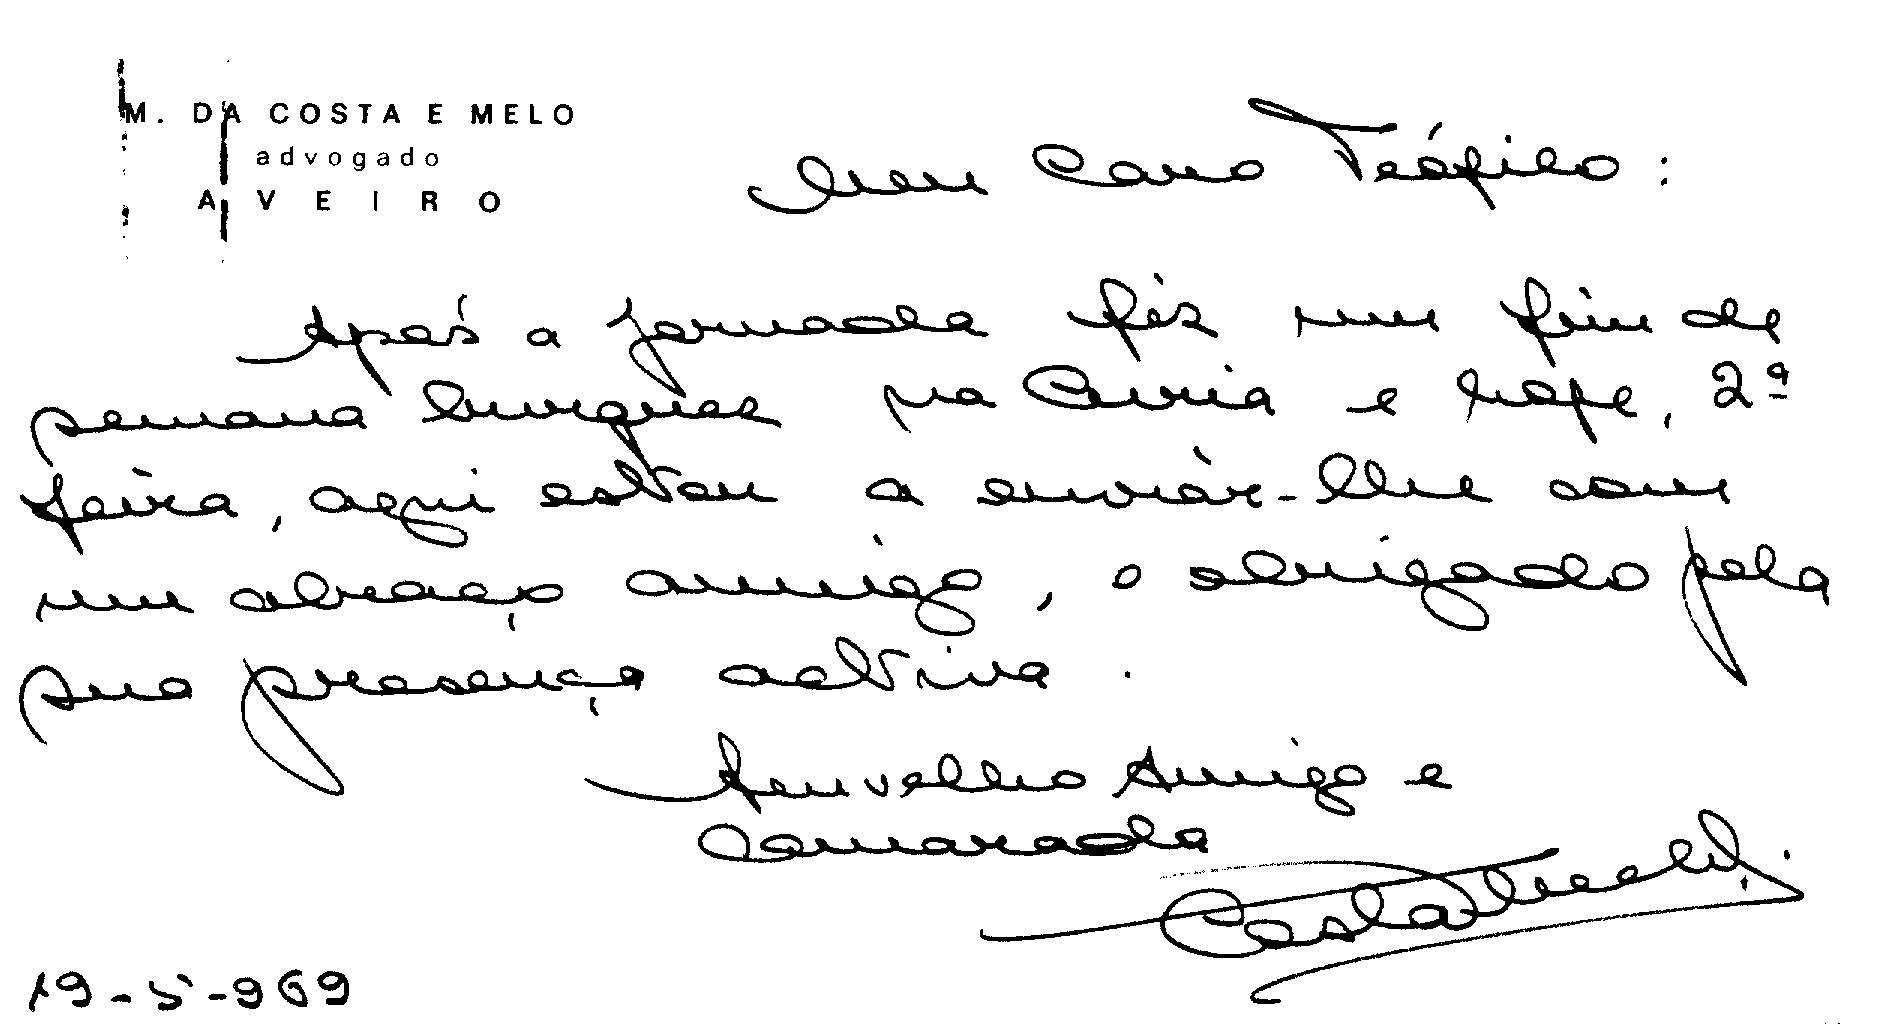 M. DA COSTA E MELO
advogado
AVEIRO
Meu Caro Teófilo:
Após a jornada fiz um fim de
semana burguez na Curia e hoje, 2ª
feira, aqui estou a enviar-lhe com
um abraço amigo, o obrigado pela
sua presença activa.
Seu velho Amigo e
Camarada
Costa e Melo
19-5-969